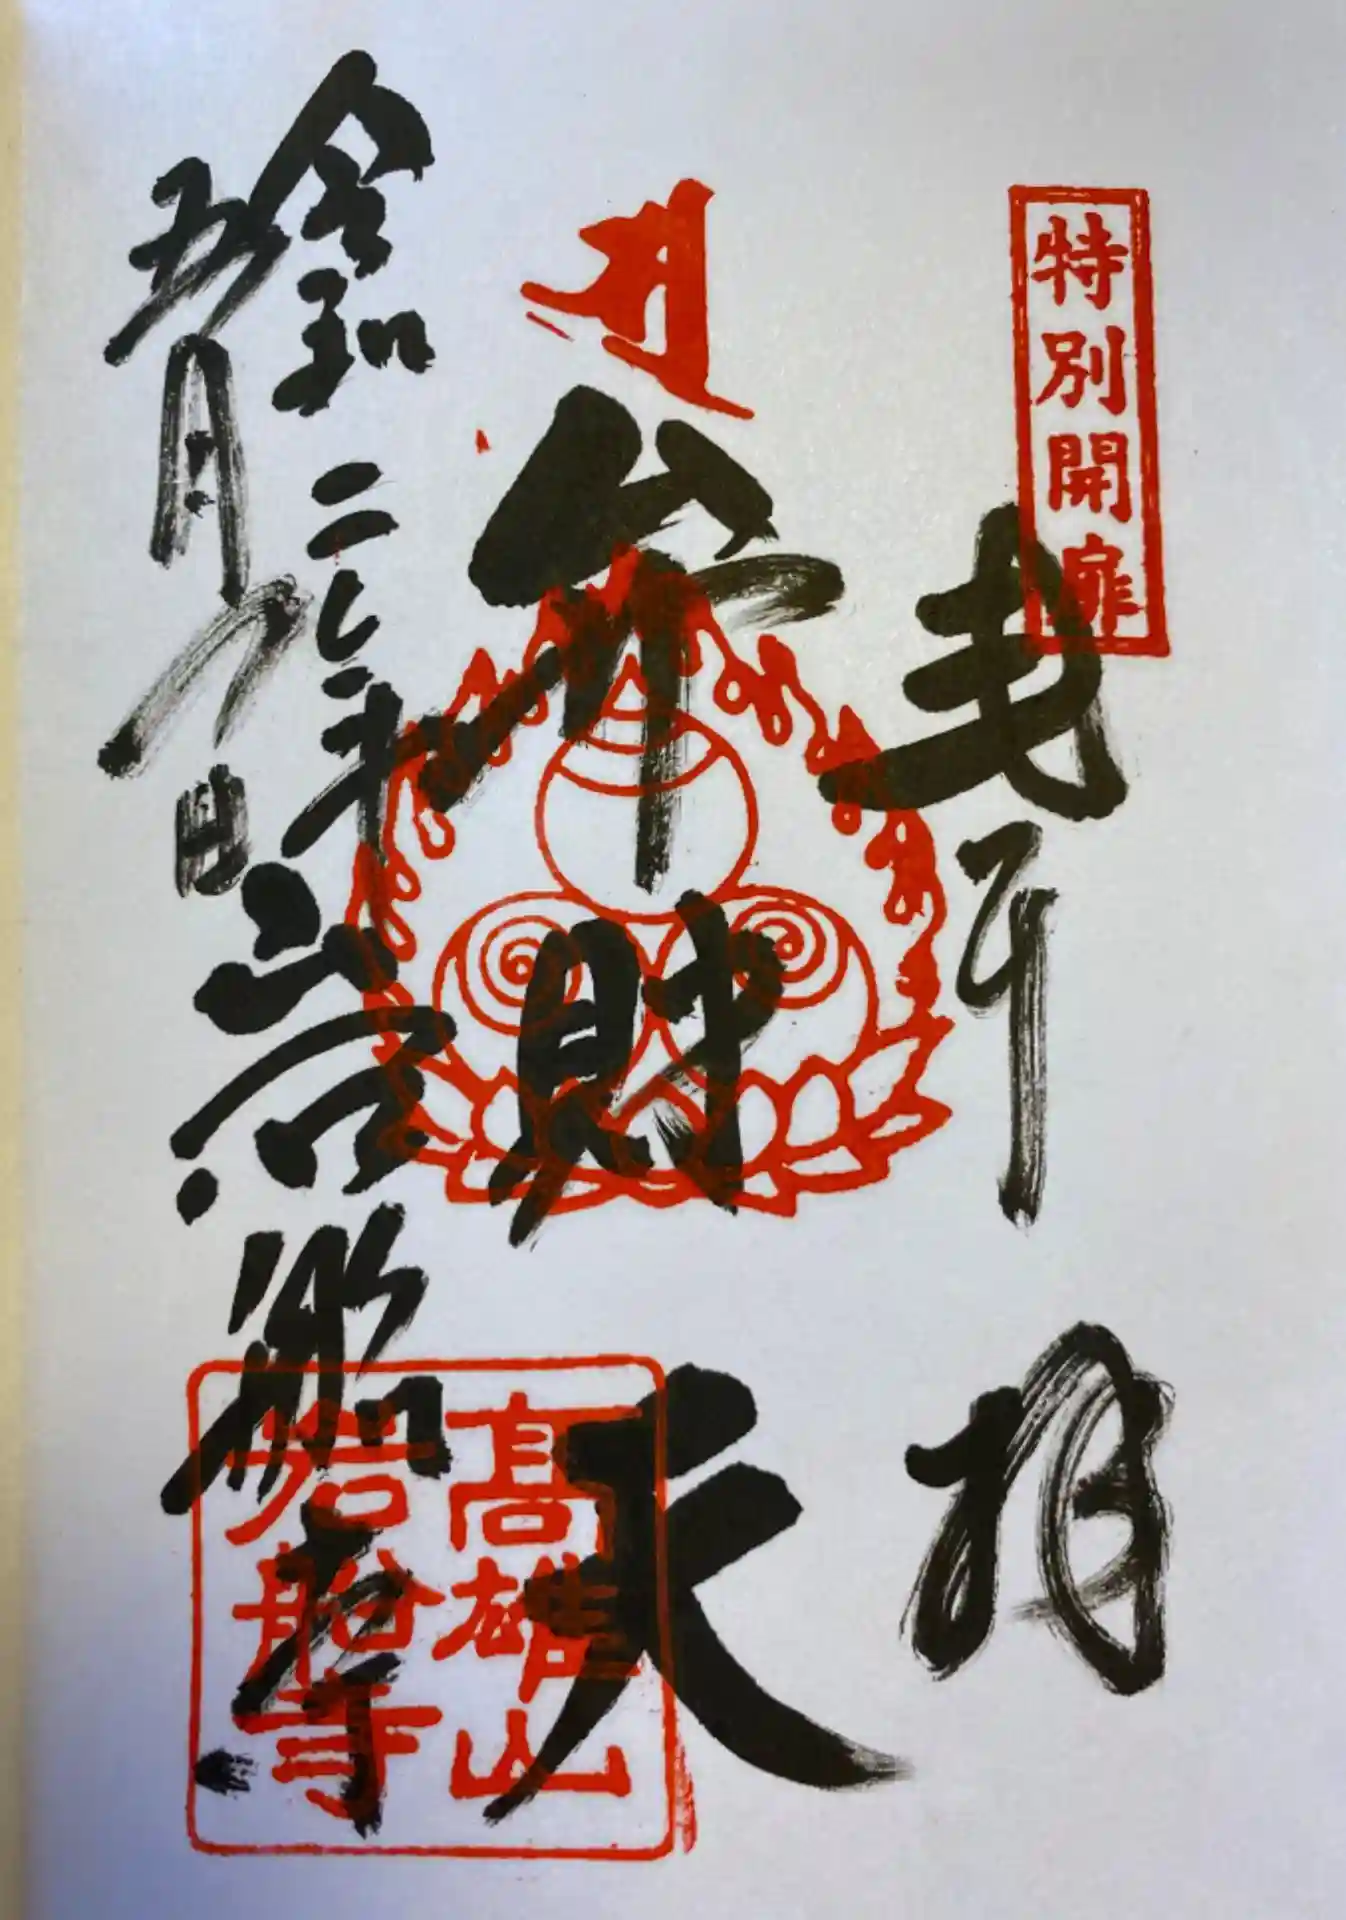 特別開扉
奉拝
弁財天
令和
年
五月
日
岩船寺
髙雄山
岩船寺